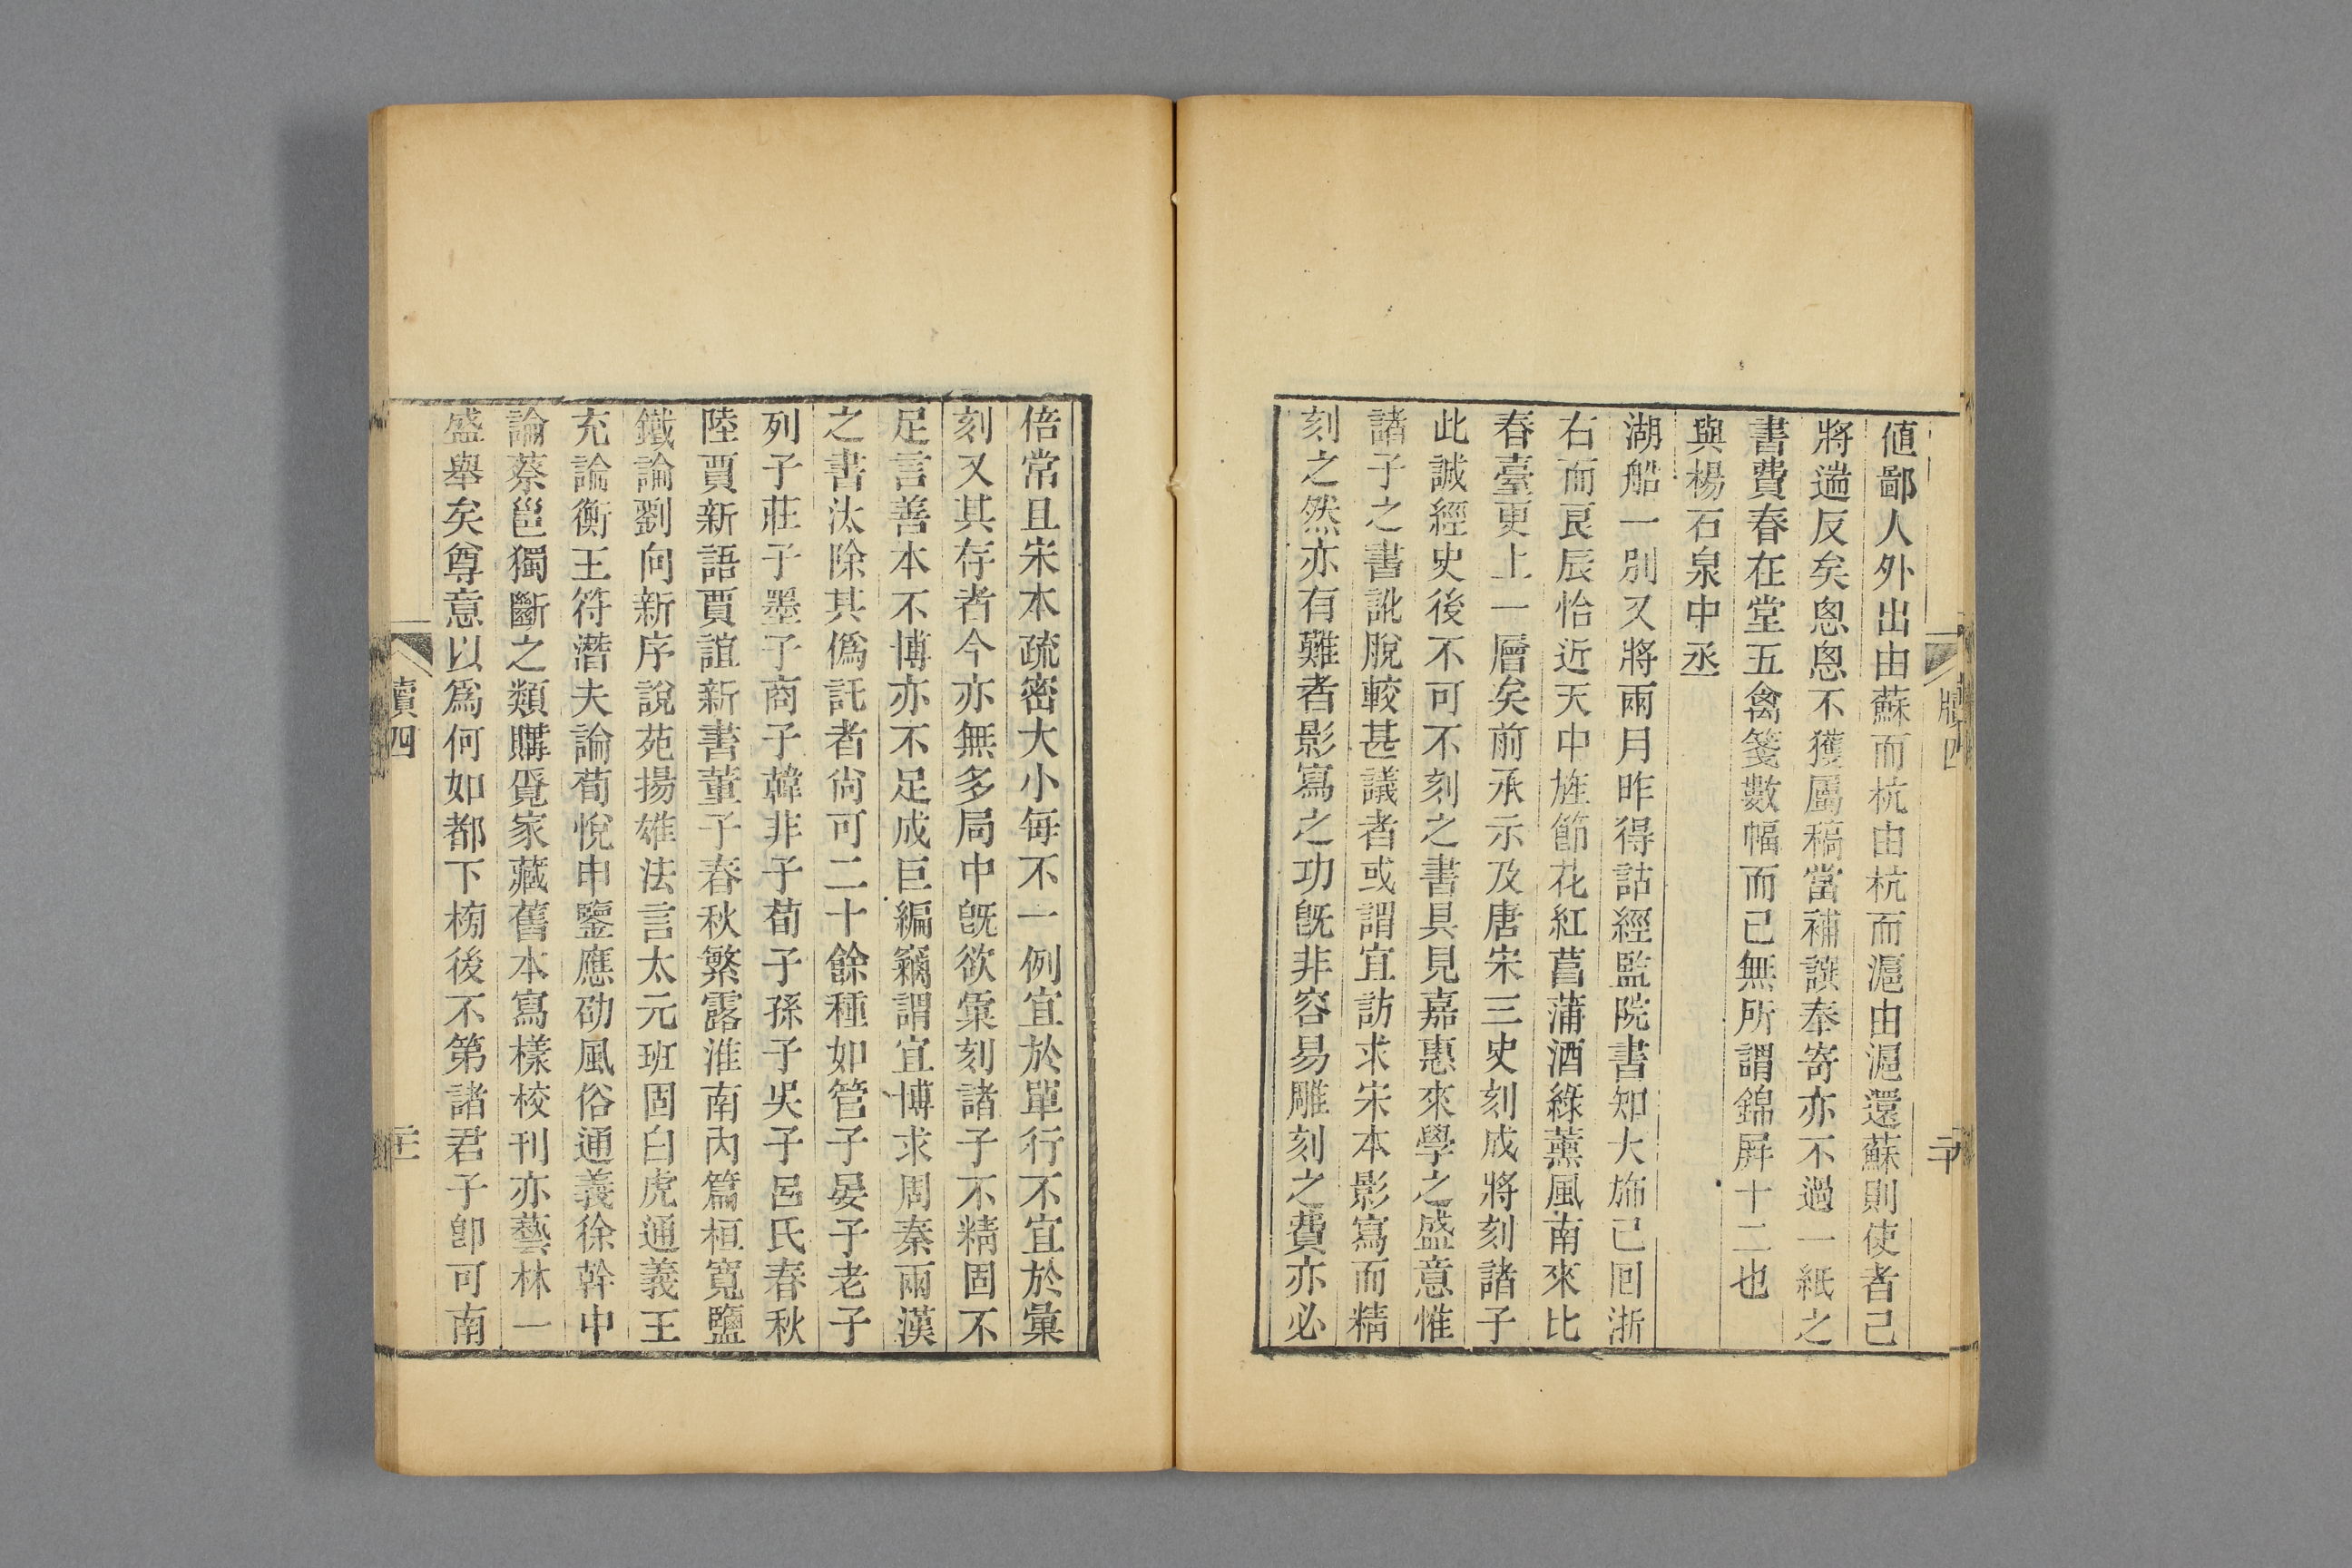 値鄙人外出由蘇而杭由杭而滬由滬還蘇則使者已
將遄反矣悤悤不獲屬稿當補譔奉寄亦不過一紙之
書費春在堂五禽箋數幅而已無所謂錦屛十二也
與楊石泉中丞
湖船一別又將兩月昨得詁經監院書知大斾已回浙
右而艮辰恰近天中旌節花紅菖蒲酒綠薰風南來比
春臺更上一層矣前承示及唐宋三史刻成將刻諸子
此誠經史後不可不刻之書具見嘉惠來學之盛意惟
諸子之書訛脫較甚議者或謂宜訪求宋本影寫而精
刻之然亦有難者影寫之功旣非容易雕刻之費亦必
牘四
二十
倍常且宋本疏密大小每不一例宜於單行不宜於彙
刻又其存者今亦無多局中旣欲彙刻諸子不精固不
足言善本不博亦不足成巨編竊謂宜博求周秦兩漢
之書汰除其僞託者尙可二十餘種如管子晏子老子
列子莊子墨子商子韓非子荀子孫子吳子呂氏春秋
陸賈新語賈誼新書董子春秋繁露淮南內篇桓寬鹽
鐵論劉向新序說苑揚雄法言太元班固白虎通義王
充論衡王符潛夫論荀悅申鑒應劭風俗通義徐幹中
論蔡邕獨斷之類購覓家藏舊本寫樣校刊亦藝林一
盛舉矣尊意以爲何如都下榜後不第諸君子卽可南
牘四